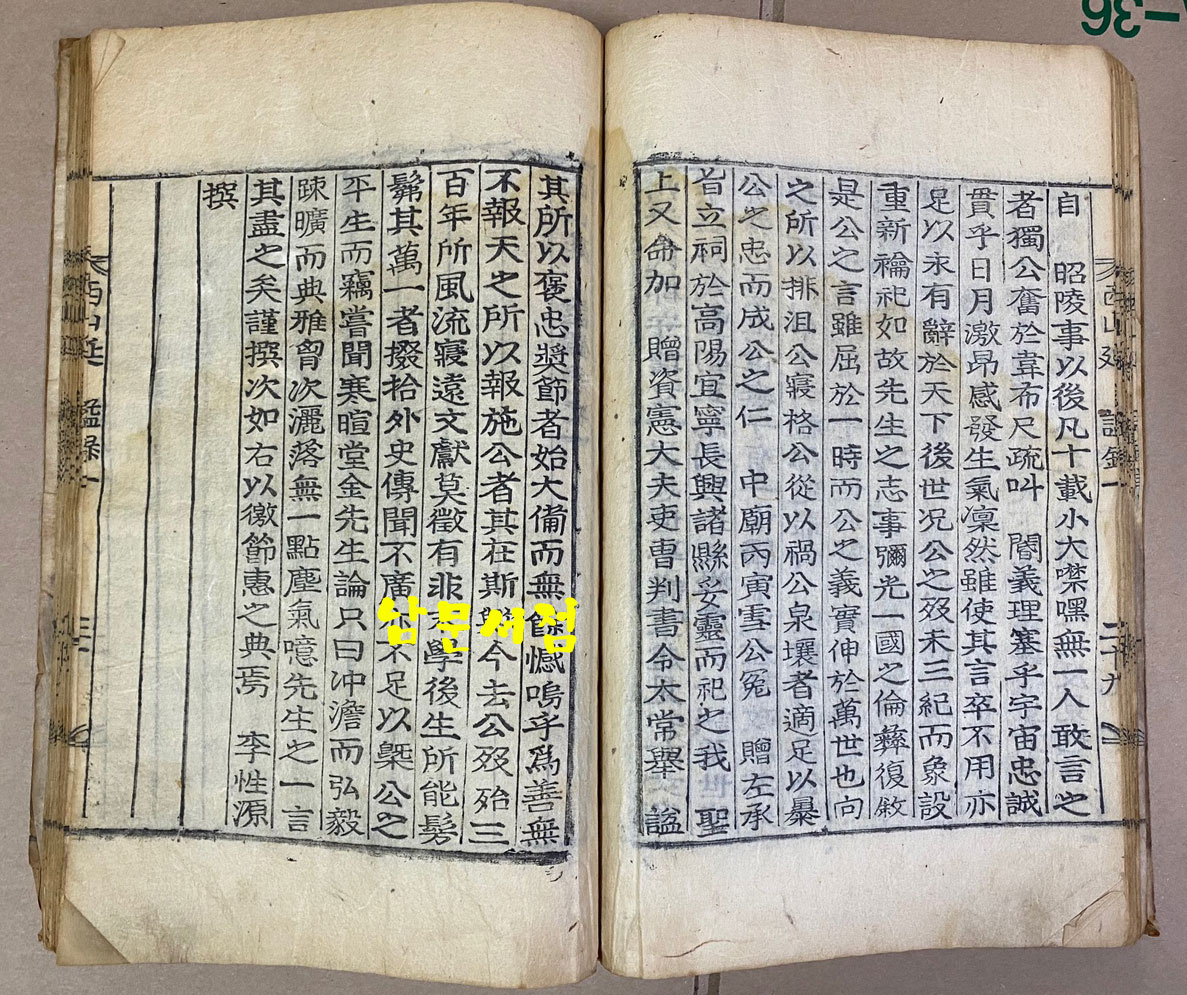 自 昭陵事以後凡十載小大噤嘿無一人敢言之
者獨公奮於韋布尺疏叫 閽義理塞乎宇宙忠誠
貫乎日月激昂感發生氣凜然雖使其言卒不用亦
足以永有辭於天下後世况公之歿未三紀而象設
重新禴祀如故先生之志事彌光一國之倫彝復敘
是公之言雖屈於一時而公之義實伸於萬世也向
之所以排沮公寢格公從以禍公泉壤者適足以暴
公之忠而成公之仁 中廟丙寅雪公寃 贈左承
旨立祠於高陽宜寧長興諸縣妥靈而祀之我 聖
上又命加 贈資憲大夫吏曹判書令太常舉 謚
其所以褒忠奬節者始大備而無餘憾嗚乎爲善無
不報天之所以報施公者其在斯歟今去公歿殆三
百年所風流寢遠文獻莫徵有非末學後生所能髣
髴其萬一者掇拾外史傳聞不廣 不足以槩公之
平生而竊嘗聞寒暄堂金先生論只曰冲澹而弘毅
踈曠而典雅胷次灑落無一點塵氣噫先生之一言
其盡之矣謹撰次如右以徼節惠之典焉 李性源
撰
삼문서점
-36